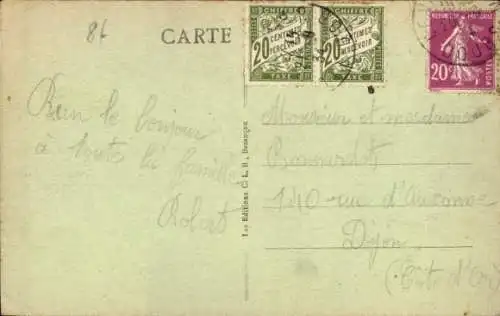 86
CARTE
CHIFFRE
20 CENTIMES À PERCEVOIR
TAXE
CHIFFRE
20 CENTIMES À PERCEVOIR
TAXE
REPUBLIQUE FRANÇAISE
20c
POSTES
Bien le bonjour
à toute la famille
Robert
Les Editions C. L. B., Besançon
Monsieur et mesdames
140 rue d'Auxonne
Dijon
(Côte d'Or)